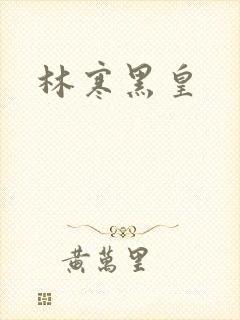 林寒黑皇
黄萬里